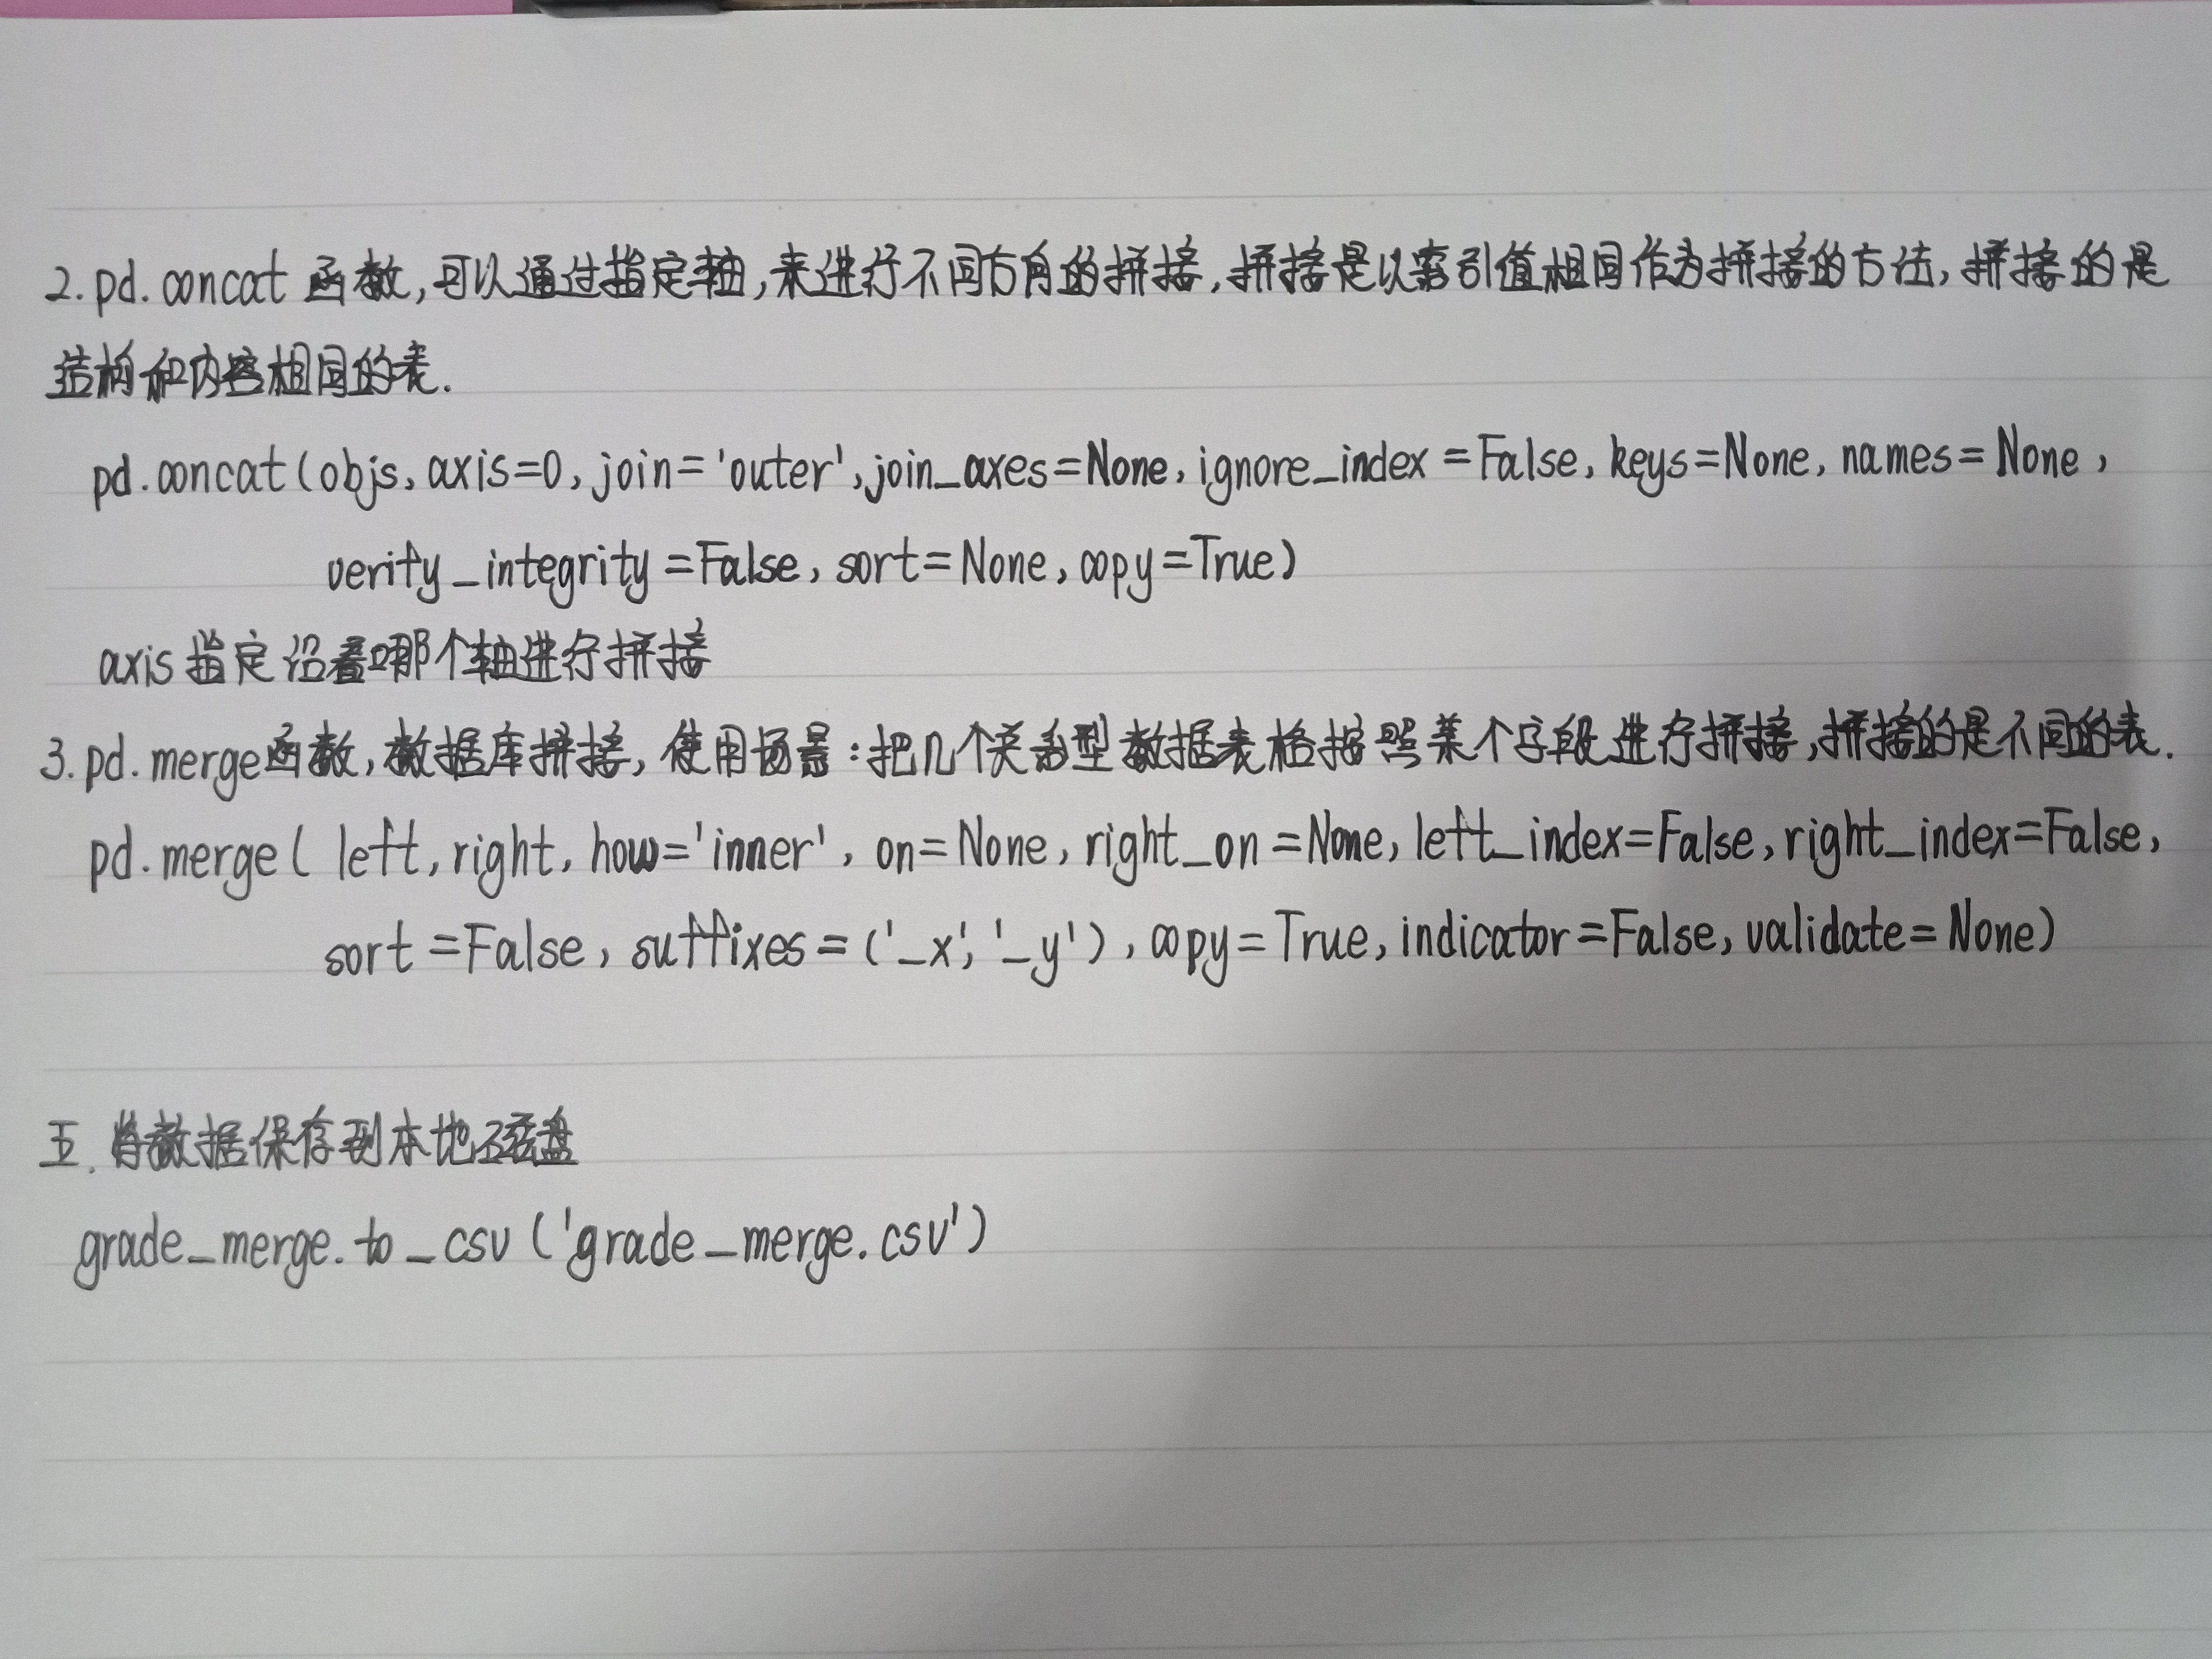 2. pd.concat 函数,可以通过指定轴,来进行不同方向的拼接,拼接是以索引值相同作为拼接的方法,拼接的是
结构和内容相同的表.
pd.concat(objs, axis=0, join='outer', join_axes=None, ignore_index=False, keys=None, names=None,
verify_integrity=False, sort=None, copy=True)
axis指定沿着哪个轴进行拼接
3. pd.merge函数,数据库拼接,使用场景:把几个关系型数据表格按照某个字段进行拼接,拼接的是不同的表.
pd.merge( left, right, how='inner', on=None, right_on=None, left_index=False, right_index=False,
sort=False, suffixes=('_x','_y'), copy=True, indicator=False, validate=None)
五. 将数据保存到本地磁盘
grade_merge.to_csv('grade_merge.csv')